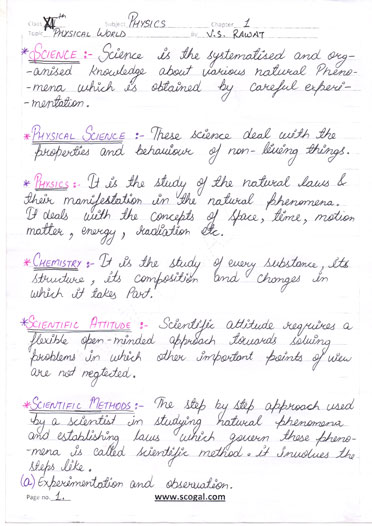 Class XIth Subject PHYSICS Chapter 1
Topic PHYSICAL WORLD By V.S. RAWAT
* SCIENCE :- Science is the systematised and org-
-anised knowledge about various natural Pheno-
-mena which is obtained by careful experi-
-mentation.
* PHYSICAL SCIENCE :- These science deal with the
properties and behaviour of non-living things.
* PHYSICS :- It is the study of the natural laws &
their manifestation in the natural phenomena.
It deals with the concepts of space, time, motion
matter, energy, radiation etc.
* CHEMISTRY :- It is the study of every substance, its
structure, its composition and changes in
which it takes Part.
* SCIENTIFIC ATTITUDE :- Scientific attitude requires a
flexible open-minded approach towards solving
problems in which other important points of view
are not neglected.
* SCIENTIFIC METHODS :- The step by step approach used
by a scientist in studying natural phenomena
and establishing laws which govern these pheno-
-mena is called scientific method. it involves the
steps like.
(a) Experimentation and observation.
Page no 1. www.scogal.com